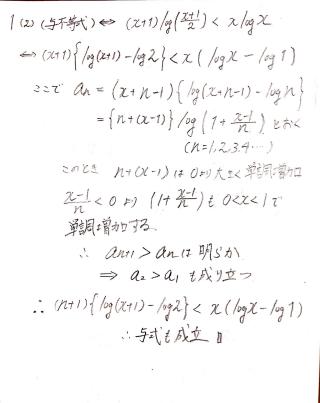 1(2) (与不等式) ⇔ (x+1)log(x+1/2) < x logx
⇔ (x+1){log(x+1)-log2} < x(logx - log1)
ここで an = (x+n-1){log(x+n-1)-logn}
= {n+(x-1)}log(1+x-1/n) とおく
(n=1,2,3,4…)
このとき n+(x-1) は 0より大きく単調増加
x-1/n < 0 より (1+x-1/n) も 0<x<1で
単調増加する
∴ an+1 > an は 明らか
⇒ a2 > a1 も成り立つ
∴ (n+1){log(x+1)-log2} < x(logx-log1)
∴ 与式も成立 〃